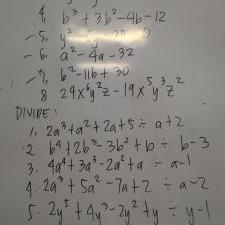 4. b³ + 3b² - 4b - 12
5. y²
6. a² - 4a - 32
7. b² - 11b + 30
8. 29x⁶y²z - 19x⁵y³z²
DIVIDE:
1. 2a³ + a² + 2a + 5 ÷ a + 2
2. b⁴ + 2b³ - 3b² + b ÷ b - 3
3. 4a⁴ + 3a³ - 2a² + a ÷ a - 1
4. 2a³ + 5a² - 7a + 2 ÷ a - 2
5. 2y⁵ + 4y³ - 2y² + y ÷ y - 1